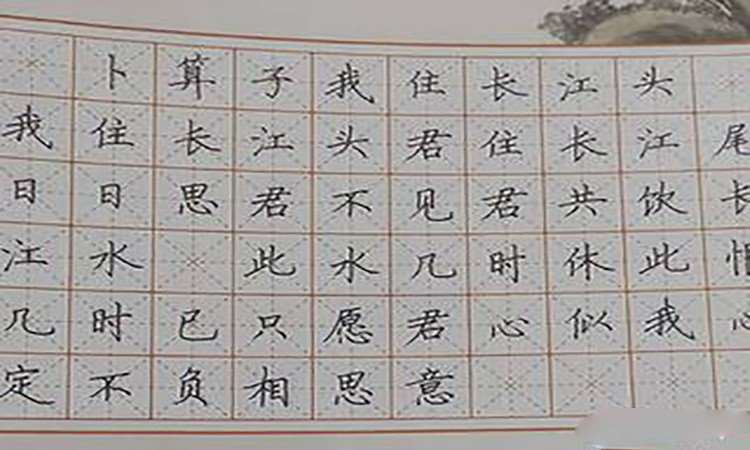 卜算子我住长江头
我住长江头君住长江尾
日日思君不见君共饮长
江水 此水几时休此
几时已只愿君心似我心
定不负相思意